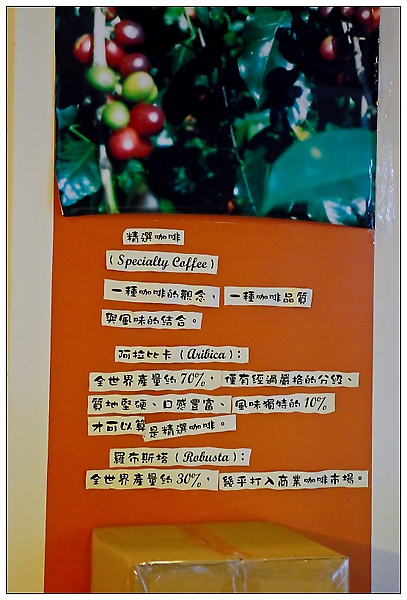 精選咖啡
(Specialty Coffee)
一種咖啡的觀念, 一種咖啡品質
與風味的結合。
阿拉比卡 (Aribica):
全世界產量約70%, 僅有經過嚴格的分級、
質地堅硬、口感豐富、風味獨特的10%
才可以算是精選咖啡。
羅布斯塔 (Robusta):
全世界產量約30%, 幾乎打入商業咖啡市場。